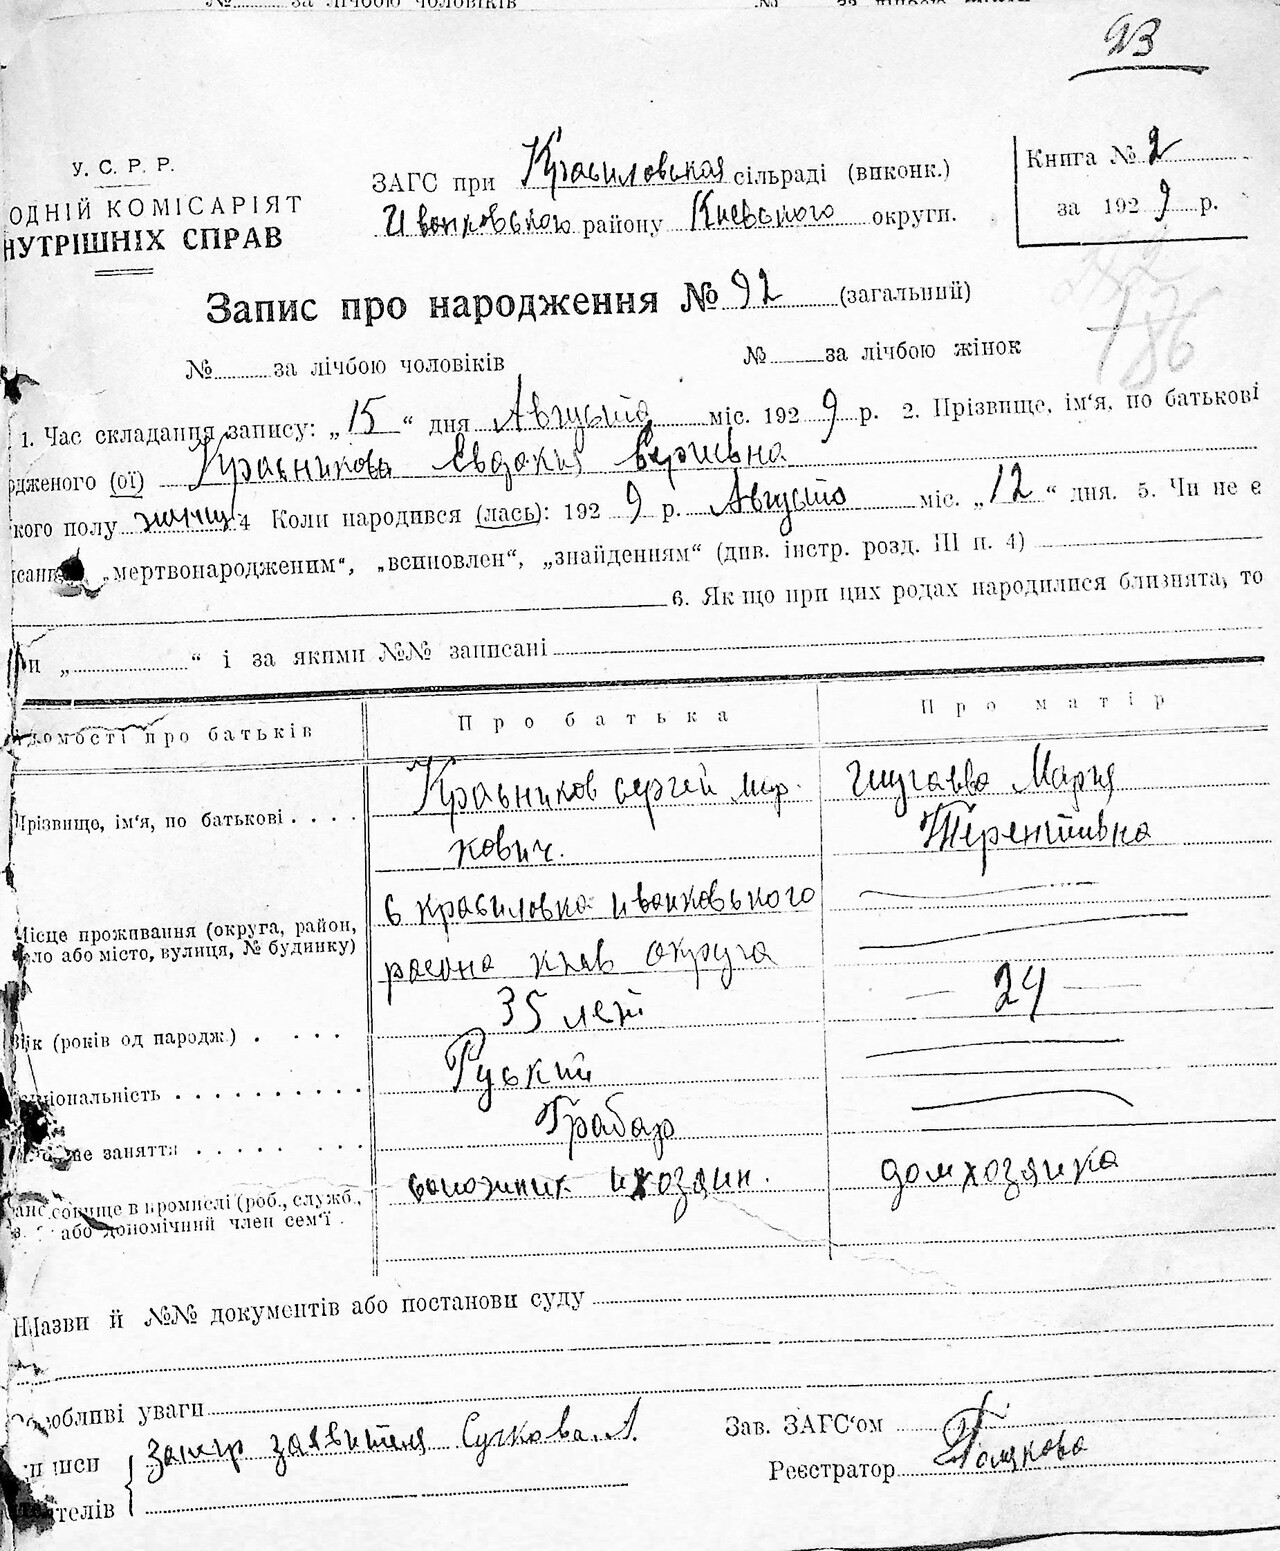 № за лічбою чоловіків №
93
У. С. Р. Р.
ОДНІЙ КОМІСАРІЯТ
НУТРІШНІХ СПРАВ
ЗАГС при Красиловская сільраді (виконк.)
Иванковською району Киевського округи.
Книга № 2
за 1929 р.
Запис про народження № 92 (загальний)
186
№ за лічбою чоловіків № за лічбою жінок
1. Час складання запису: „15“ дня Августа міс. 1929 р. 2. Прізвище, ім'я, по батькові
дженого (ої) Красникова Евдокия Сергиевна
кого полу 4 Коли народився (лась): 1929 р. Августа міс. „12“ дня. 5. Чи не є
„мертвонародженим“, „всиновлен“, „знайденням“ (див. інстр. розд. III п. 4)
6. Якщо при цих родах народилися близнята, то
и „ “ і за якими №№ записані
домості про батьків Про батька Про матір
Прізвище, ім'я, по батькові . . . . Красников Сергей Мар- Шугаева Мария
кович. Терентивна
Місце проживання (округа, район,
ло або місто, вулиця, № будинку) с Красиловка Иванковського
раена киев округа
Вік (років од народж.) . . . . 35 лет 24
ціональність . . . . . . . . . . Руский
не заняття . . . . . . . . Грабар
совище в промислі (роб., служб., хозяин. домхозяика
або допомічний член сем'ї .
Назви й №№ документів або постанови суду
Особливі уваги
писи заявителя Сучкова. А.
телів
Зав. ЗАГС'ом
Реєстратор Полякова